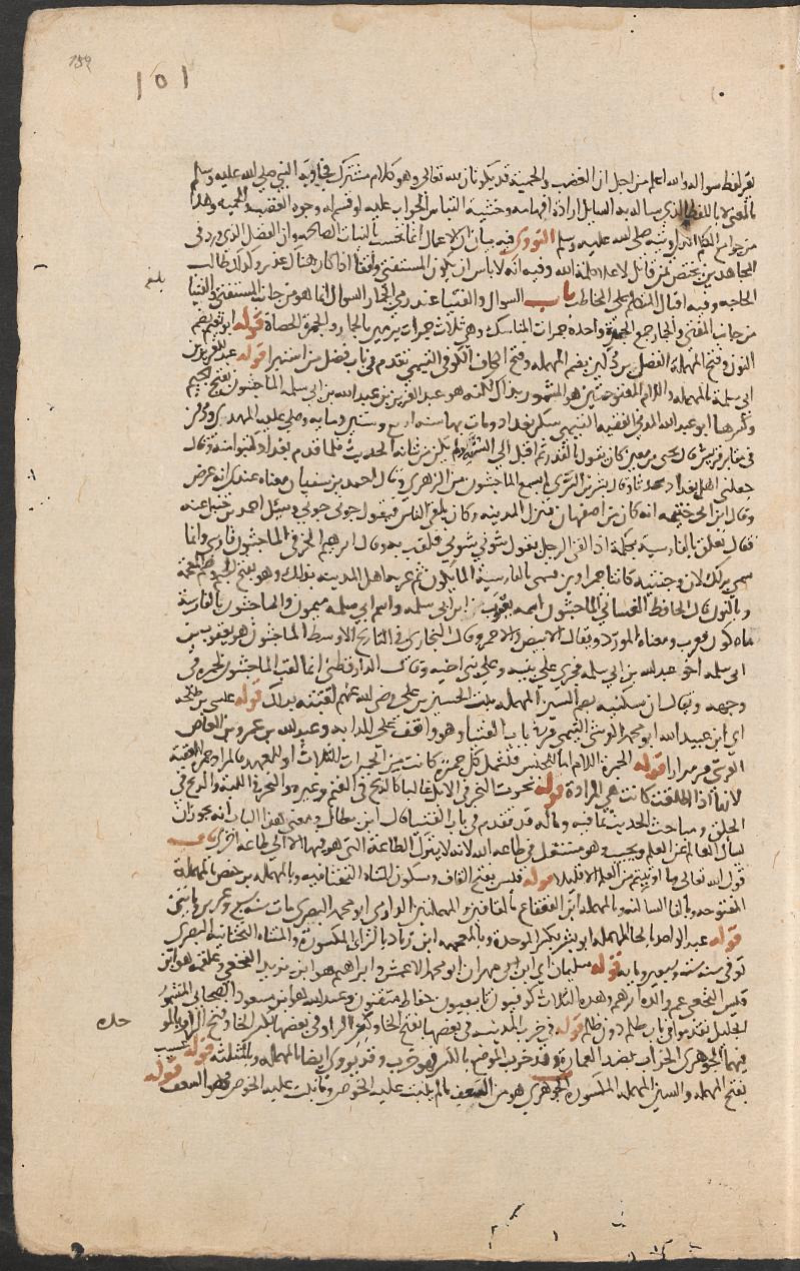 159
151
بقي لفظ سواله والله اعلم من اجل ان الغضب والحمية قد يكونان لله تعالى وهو كلام مشترك فجاوبه النبي صلى الله عليه وسلم
بالمعنى لا باللفظ الذي ساله به السايل ارادة افهامه وخشية التباس الجواب عليه لو قسم له وجوه الغضب والحمية وهذا
من جوامع الكلم الذي اوتيه صلى الله عليه وسلم النووي فيه بيان ان الاعمال انما تحسب بالنيات الصالحة وان الفضل الذي ورد في
المجاهدين يختص بمن قاتل لاعلاء كلمة الله وفيه انه لا باس ان يكون المستفتي واقفا اذا كان هناك عذر وكذلك طالب
بلغ
الحاجه وفيه اقبال المتكلم على المخاطب باب السوال والفتيا عند رمي الجمار السوال انما هو من جانب المستفتي والفتيا
من جانب المفتي والجمار جمع الجمرة واحده جمرات المناسك وهي ثلاث جمرات يرمين بالجمار والجمرة الحصاة قوله ابو نعيم بضم
النون وفتح المهملة الفضل بن دكين بضم المهمله وفتح الكاف الكوفي التيمي تقدم في باب فضل من استبرا قوله عبد العزيز بن
ابي سلمة بالمهمله واللام المفتوحتين هو المشهور بذاك لكنه هو عبد العزيز بن عبد الله بن ابي سلمة الماجشون بفتح الجيم
وكسرها ابو عبد الله المدني الفقيه التيمي سكن بغداد ومات بها سنه اربع وستين ومايه وصلى عليه المهدي ودفن
في مقابر قريش قال يحيى بن معين كان يقول بالقدر ثم اقبل الى السنة ولم يكن من شانه الحديث فلما قدم بغداد كتبوا عنه وقال
جعلني اهل بغداد محدثا وقال بشر بن السري لم يسمع الماجشون من الزهري وقال احمد بن سنيان معناه عندي انه عرض
وقال ابن ابي خيثمه انه كان من اصفهان فنزل المدينه وكان يلقى الناس فيقول جوني جوني وسئل احمد بن حنبل عنه
فقال تعلق بالفارسية بكلمة اذا لقي الرجل يقول شوني شوني فلقب به وقال ابرهيم الحربي الماجشون فارسي وانما
سمي بذلك لان وجنتيه كانتا حمراوين فسمي بالفارسية المايكون ثم عربها اهل المدينه بذلك وهو بفتح الجيم وضم المعجمة
وبالنون قال الحافظ الغساني الماجشون اسمه يعقوب بن ابي سلمه واسم ابي سلمه ميمون والماجشون بالفارسية
ماه كون فعرب ومعناه المورد ويقال الابيض والاحمر وقال البخاري في التاريخ الاوسط الماجشون هو يعقوب بن
ابي سلمه اخو عبد الله بن ابي سلمه فجرى على بنيه وعلى بني اخيه وقال الدارقطني انما لقب الماجشون لحمرة في
وجهه ويقال ان سكينه بضم السين المهمله بنت الحسين بن علي رضي الله عنهم لقبته بذاك قوله عيسى بن طلحه
اي ابن عبيد الله ابو محمد القرشي التيمي مر في باب الفتيا وهو واقف على الدابه وعبد الله بن عمرو بن العاص
القرشي مر مرارا قوله الجمرة اللام اما للجنس فيشمل كل جمرة كانت من الجمرات الثلاث او للعهد والمراد جمرة العقبة
لانها اذا اطلقت كانت هي المرادة قوله نحرت النحر في الابل غالبا كالذبح في الغنم وغيره والنحر في اللبة والذبح في
الحلق ومباحث الحديث بما فيه وما له قد تقدم في باب الفتيا قال ابن بطال ومعنى هذا الباب انه يجوز ان
يسال العالم عن العلم ويجيب وهو مشتغل في طاعه الله لانه لا يترك الطاعة التي هو فيها الا الى طاعة اخرى باب
قول الله تعالى وما اوتيتم من العلم الا قليلا قوله قيس بفتح القاف وسكون المثناه التحتانيه وبالمهمله بن حفص بالمهملة
المفتوحه وبالفا الساكنه وبالمهمله ابن القعقاع بالقافين والمهملتين الدارمي ابو محمد البصري مات سنه سبع وعشرين ومايتين
قوله عبد الواحد بالحا المهمله ابو بشر بكسر الموحدة وبالمعجمه ابن زياد بالزاي المكسورة والمثناه التحتانيه البصري
توفي سنه ست وسبعين ومايه قوله سليمان اي ابن مهران ابو محمد الاعمش وابراهيم هو ابن يزيد النخعي وعلقمه هو ابن
قيس النخعي عم والدة ابرهيم وهذه الثلاث كوفيون تابعيون حفاظ متقنون وعبد الله هو ابن مسعود الصحابي المشهور
الجليل تقدموا في باب ظلم دون ظلم قوله في خرب المدينه في بعضها بفتح الخا وكسر الراء وفي بعضها بكسر الخا وفتح الراء وبالموحده
فيهما الجوهري الخراب ضد العمار وقد خرب الموضع بالكسر فهو خرب وقد روي ايضا بالمهمله وبالمثلثه قوله عسيب
بفتح المهمله والسين المهمله المكسوره الجوهري هو من السعف ما لم ينبت عليه الخوص وما نبت عليه الخوص فهو السعف قوله